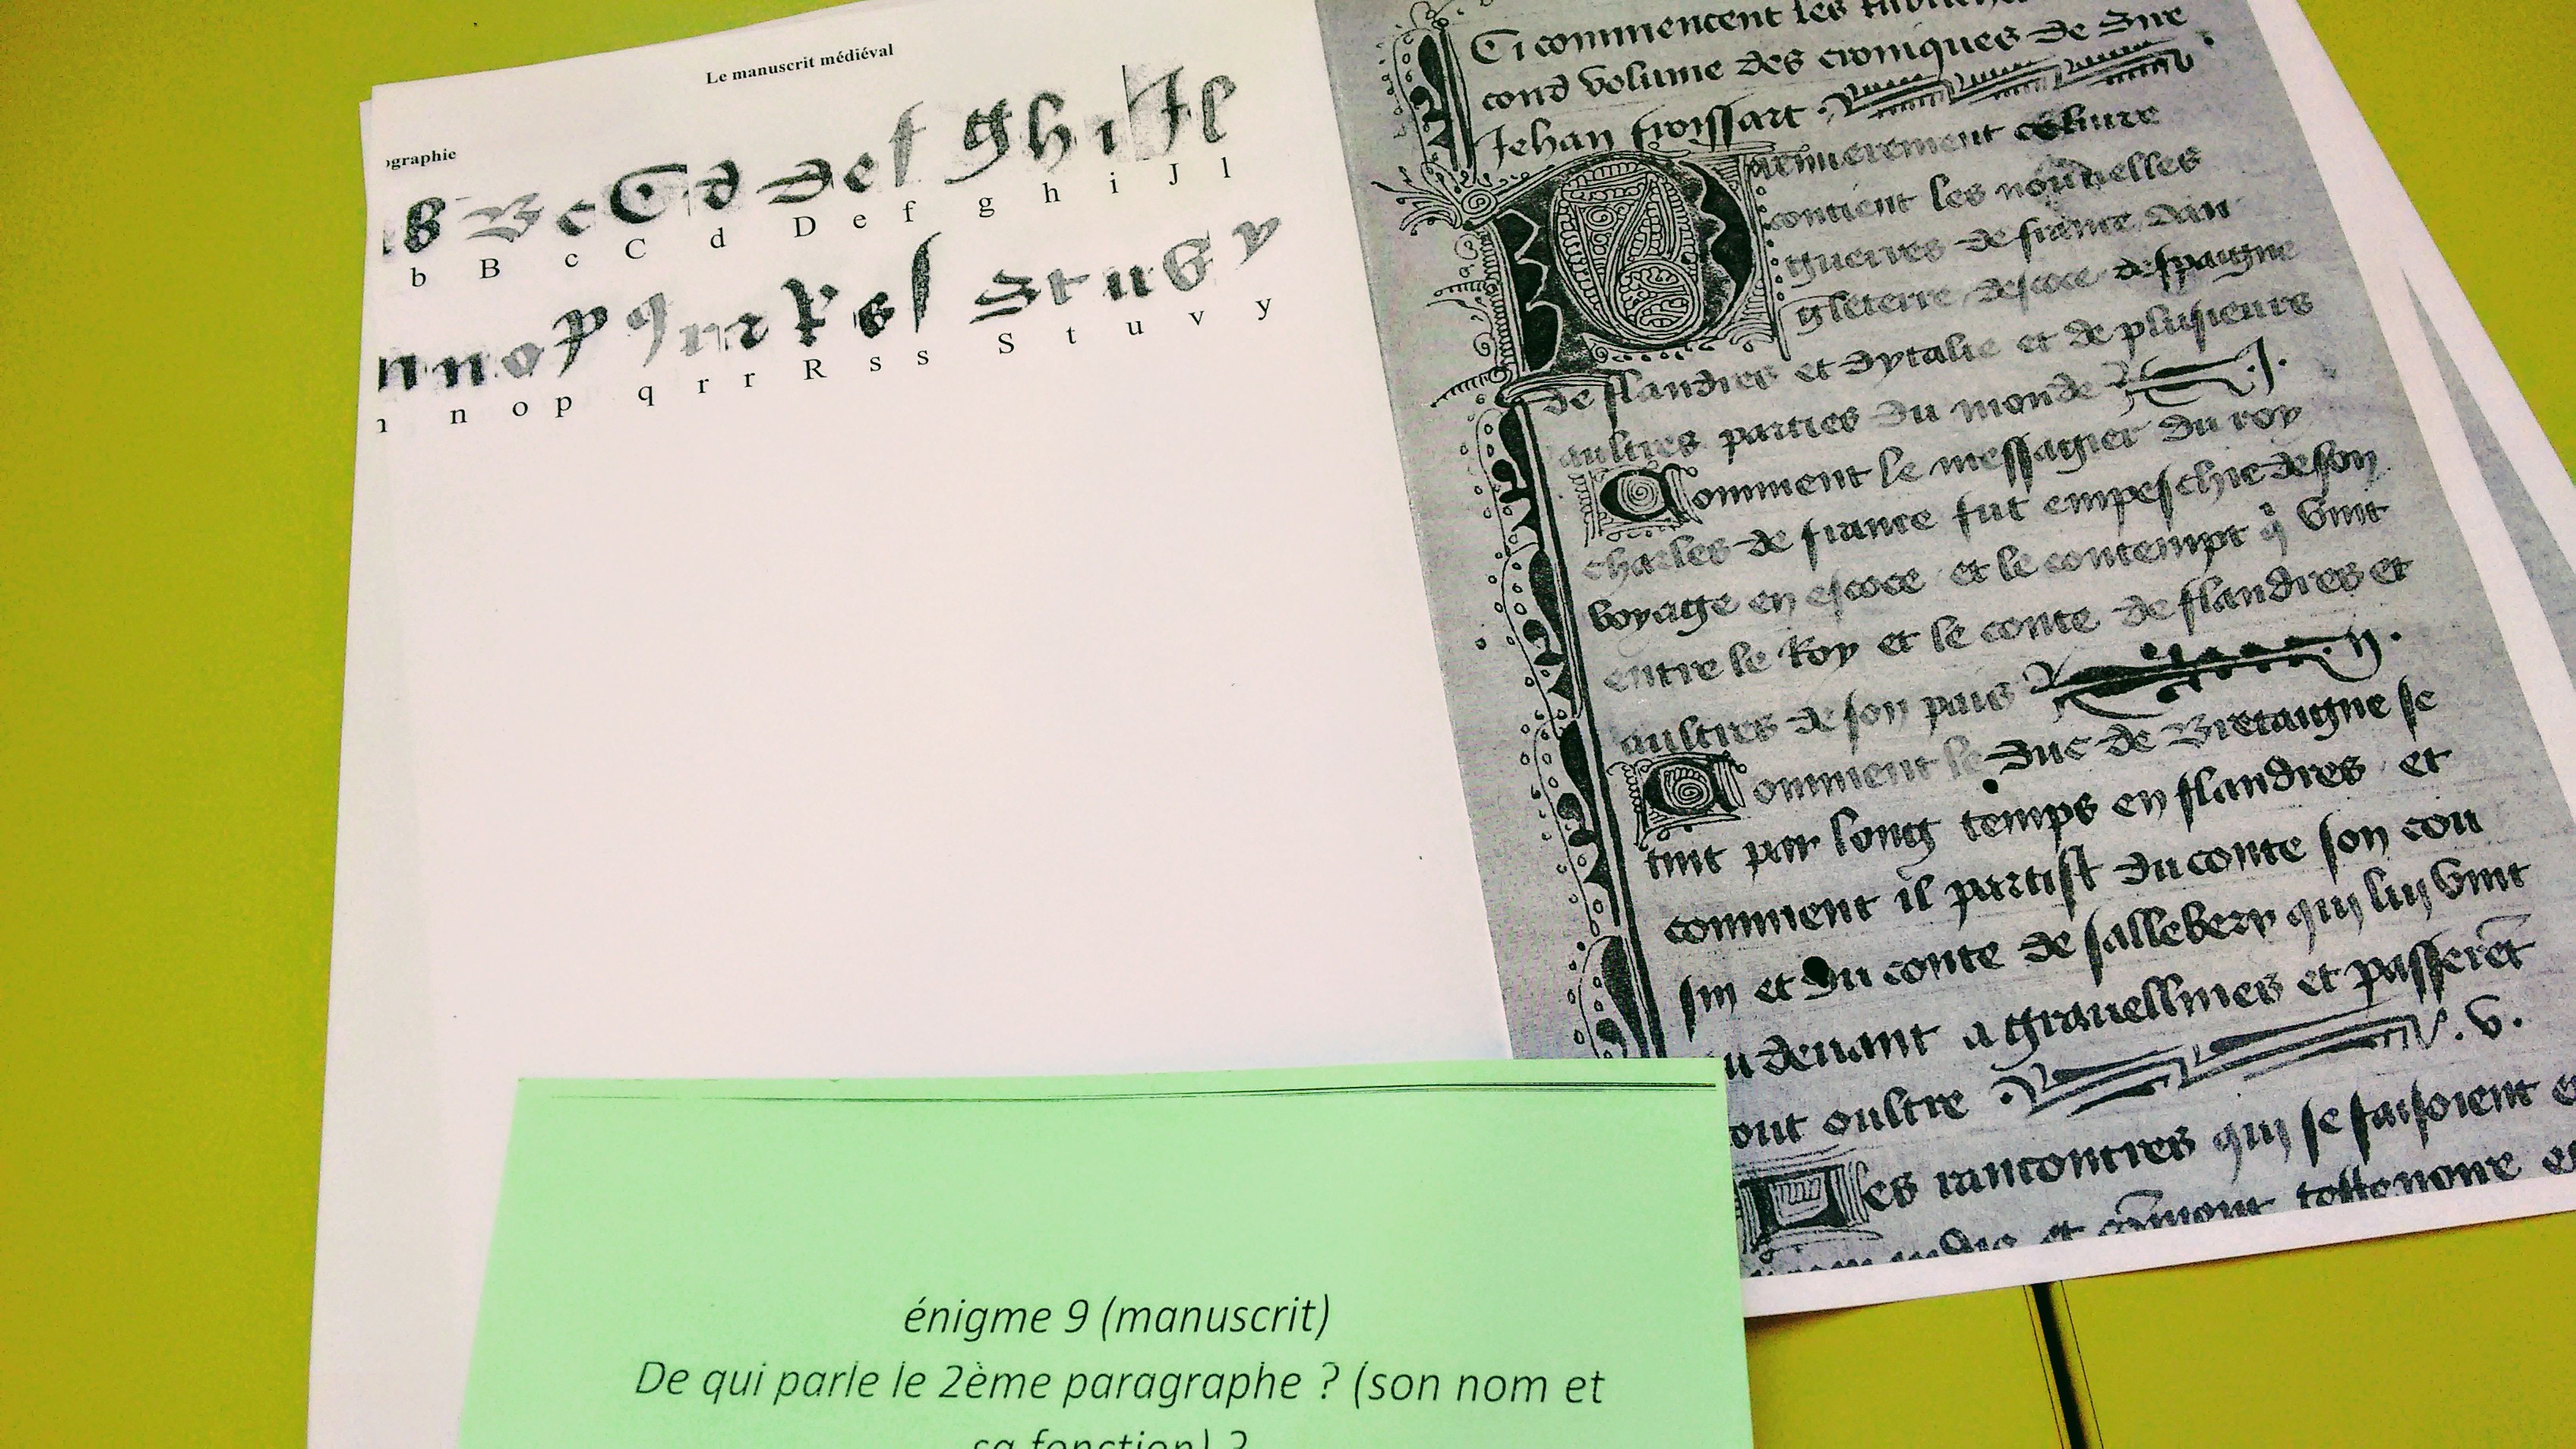 Le manuscrit médiéval
ographie
b B c C d D e f g h i J l
n o p q r r R s s S t u v y
Ci commencent les
cond volume des croniques de Sire
Jehan froissart
Premierement ce liure
contient les nouuelles
guerres de france dan
gleterre descoce despaigne
de flandres et dytalie et de plusieurs
aultres parties du monde .J.
Comment le messagier du roy
charles de france fut empeschie de son
voyage en escoce et le contempt q vint
entre le Roy et le conte de flandres et
aultres de son pais .ij.
Comment le Duc de Bretaigne se
tint par long temps en flandres et
comment il partist du conte son cou
sin et du conte de sallebery quy luy vint
au deuant a grauellines et passerēt
tout oultre .v.
Les rancontres quy se faisoient
et
énigme 9 (manuscrit)
De qui parle le 2ème paragraphe ? (son nom et
sa fonction) ?